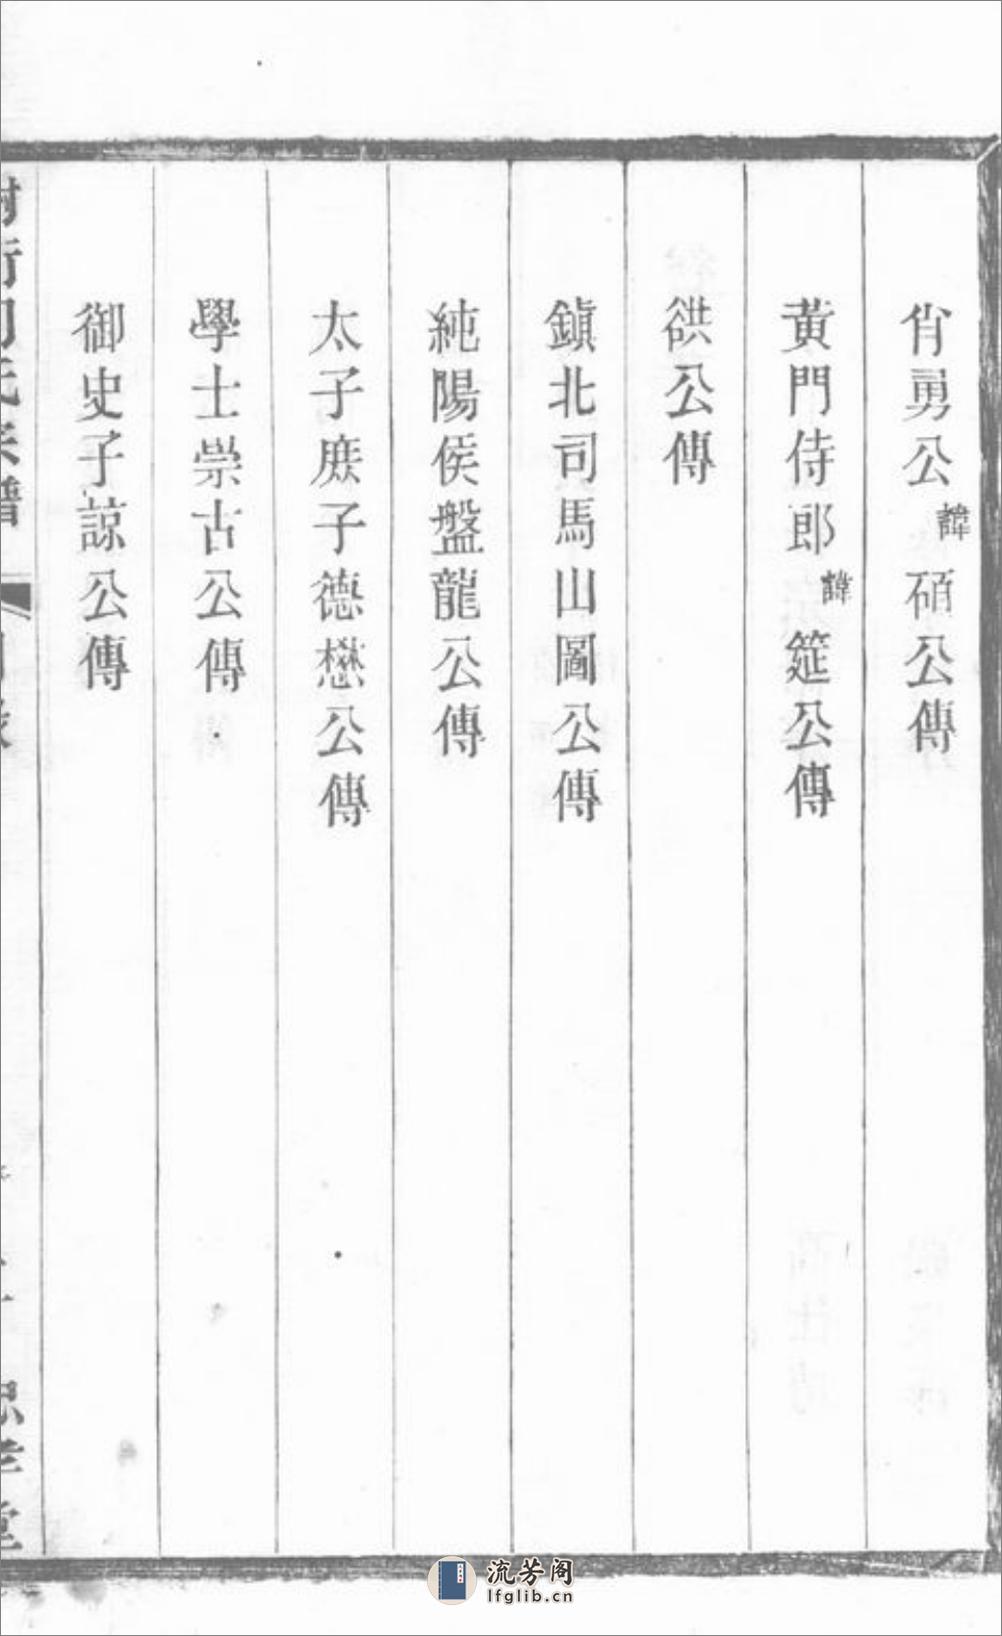 肖勇公諱碩公傳
黃門侍郎諱筵公傳
谼公傳
鎭北司馬山圖公傳
純陽侯盤龍公傳
太子庶子德懋公傳
學士崇古公傳
御史子諒公傳
氏宗譜
忠孝堂
流芳阁
lfglib.cn